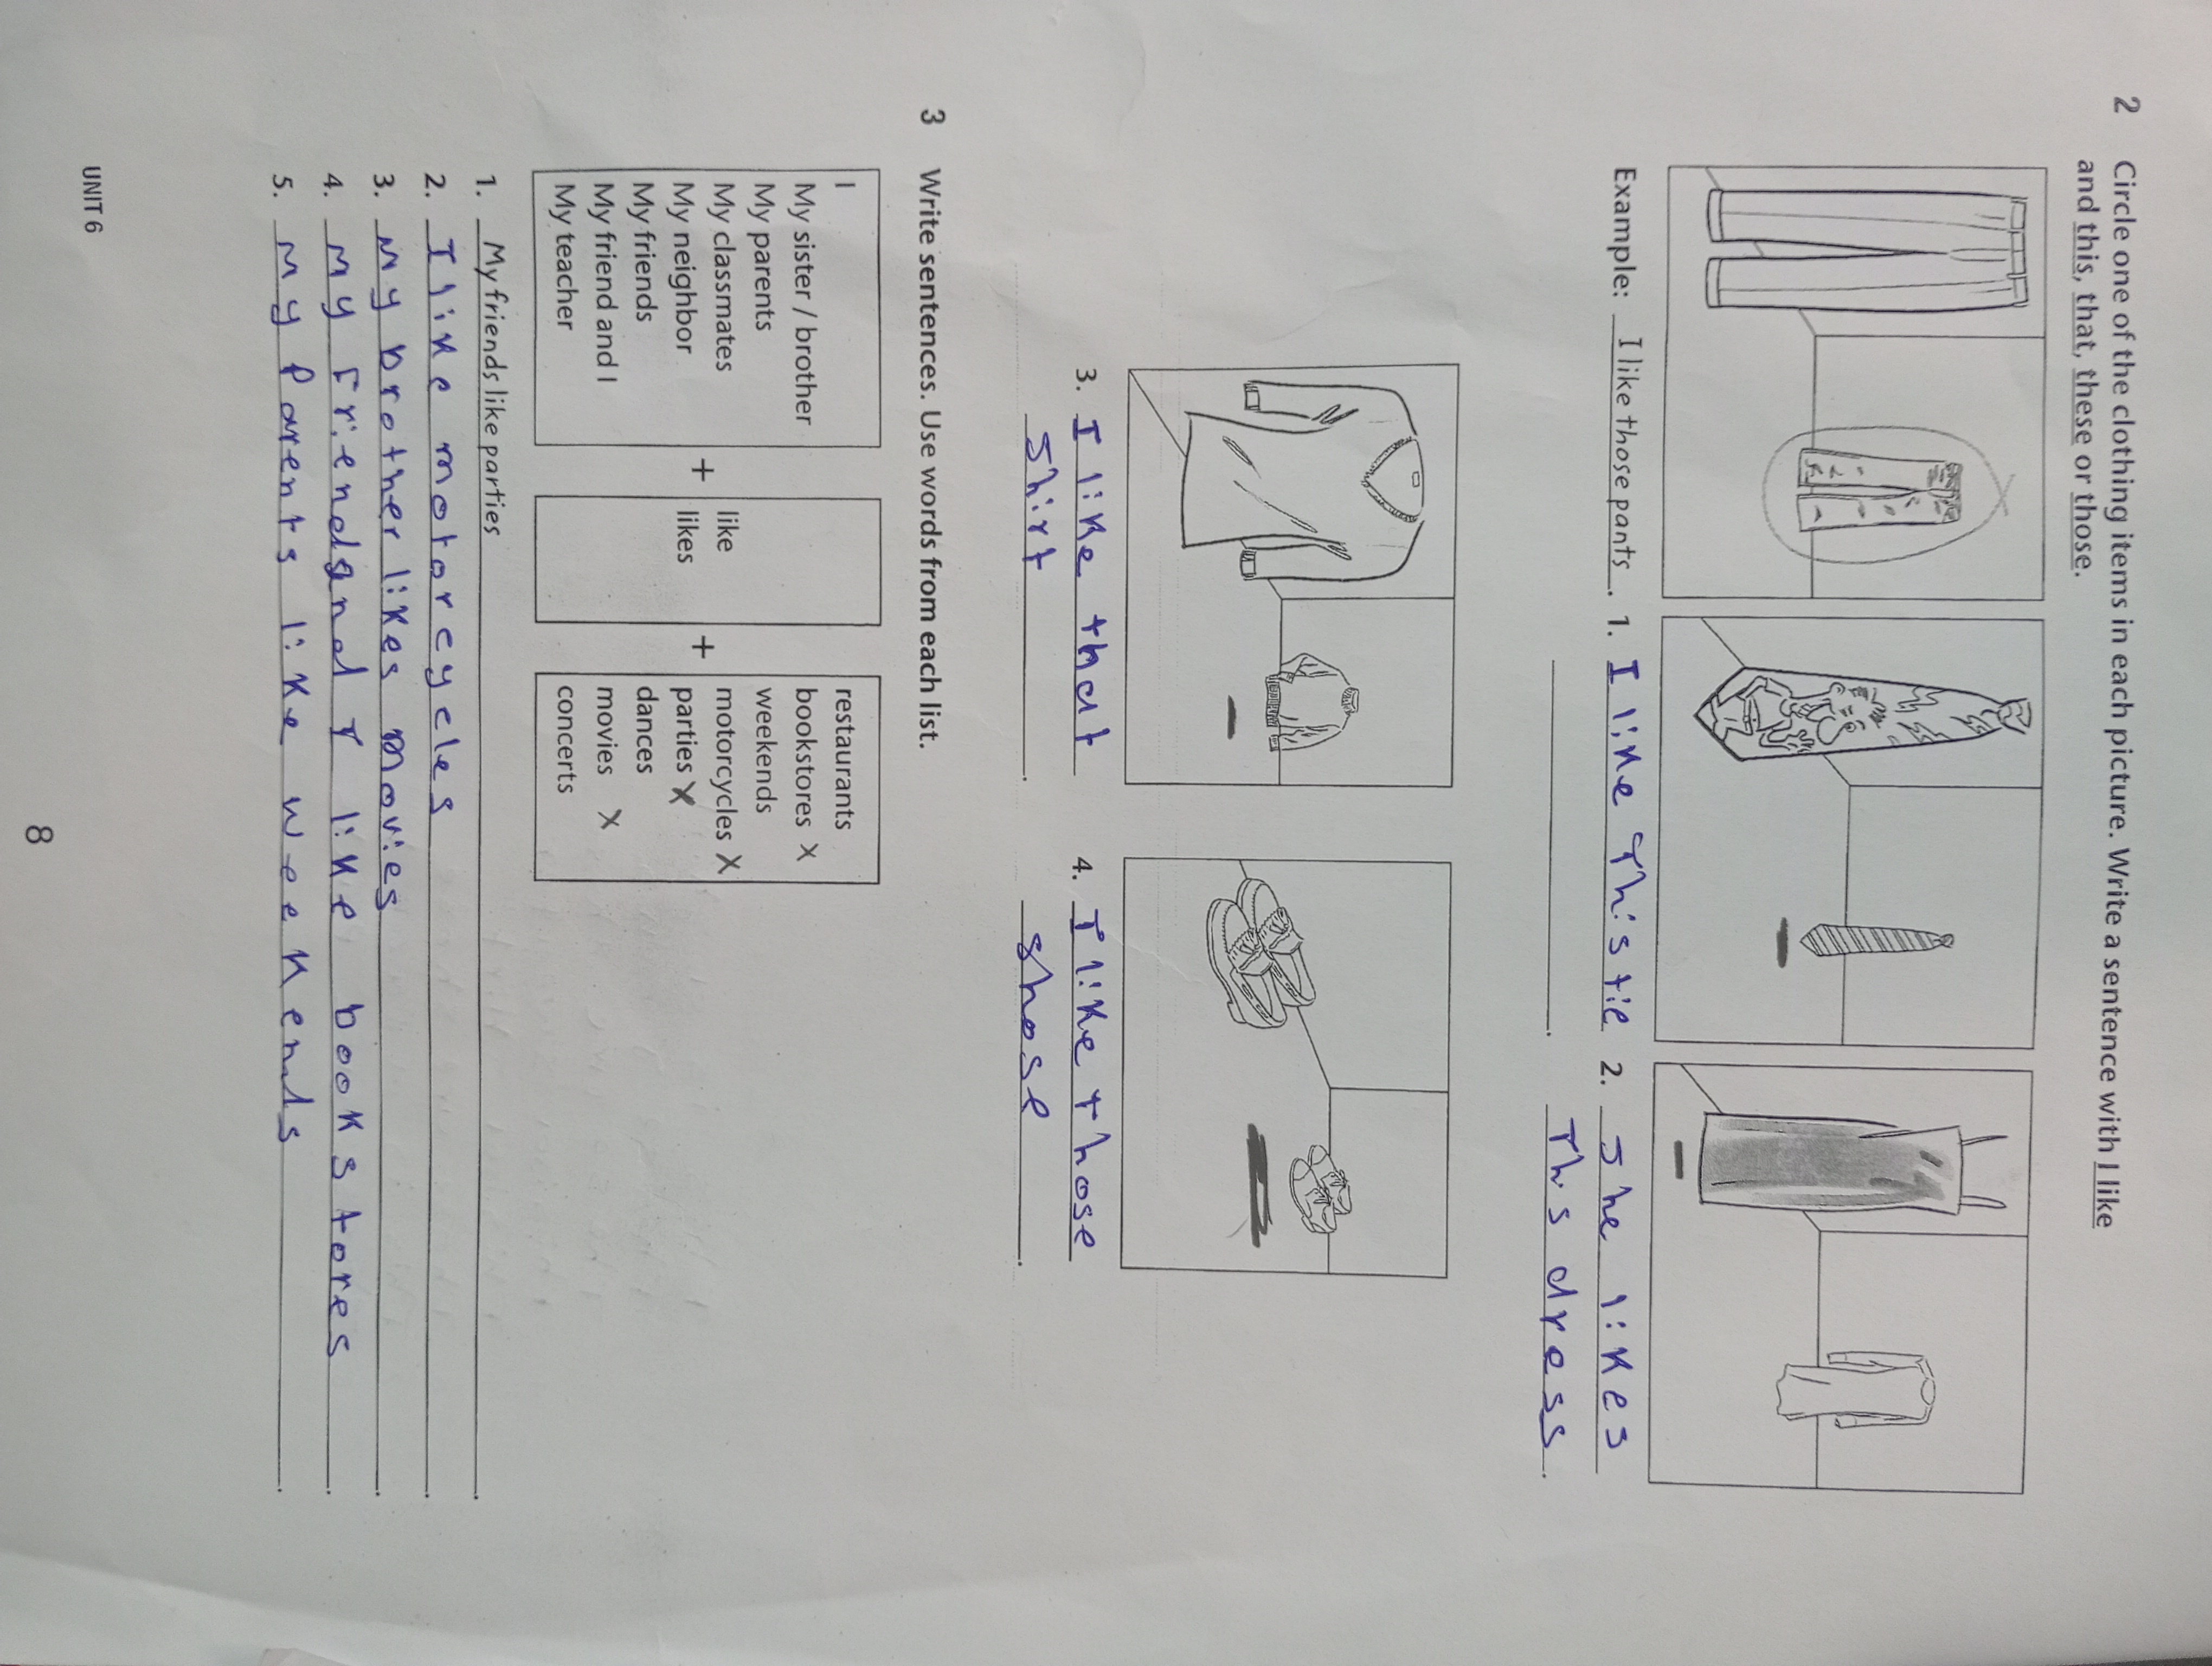 2 Circle one of the clothing items in each picture. Write a sentence with I like
and this, that, these or those.
Example: I like those pants. 1. I like This tie 2. She likes
Ths dress.
3. I like that 4. I like those
Shirt. shose.
3 Write sentences. Use words from each list.
I
My sister / brother
My parents
My classmates
My neighbor
My friends
My friend and I
My teacher
+
like
likes
+
restaurants
bookstores X
weekends
motorcycles X
parties X
dances
movies X
concerts
1. My friends like parties.
2. I like motorcycles.
3. My brother likes movies.
4. My Friend and I like book stores.
5. My Parents like weekends.
UNIT 6
8